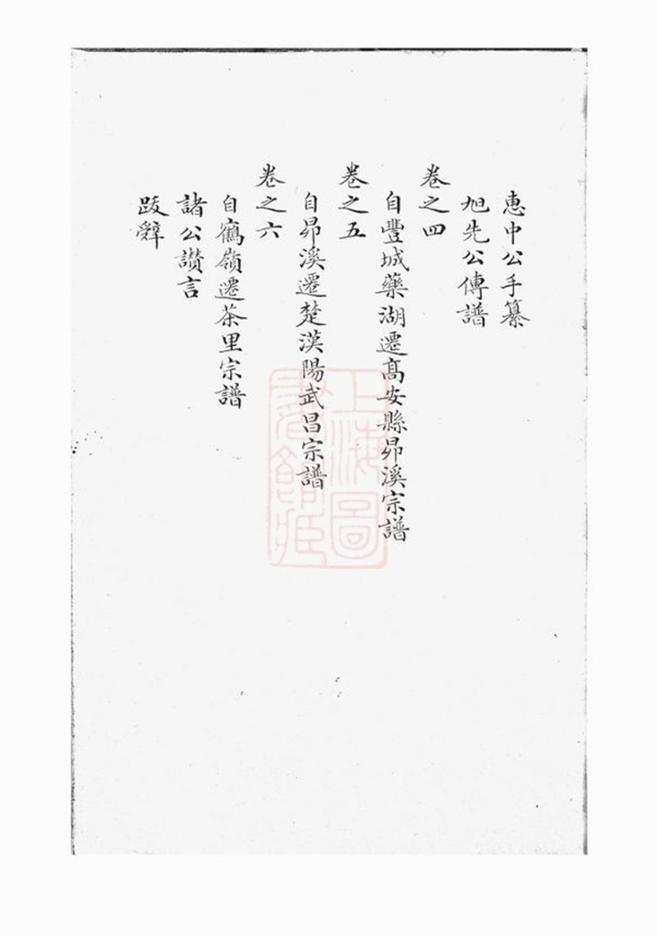 惠中公手纂
旭先公傳譜
卷之四
自豐城藥湖遷髙安縣昻溪宗譜
卷之五
自昻溪遷楚漢陽武昌宗譜
卷之六
自鶴嶺遷茶里宗譜
諸公讚言
跋辭
上海圖
書館藏